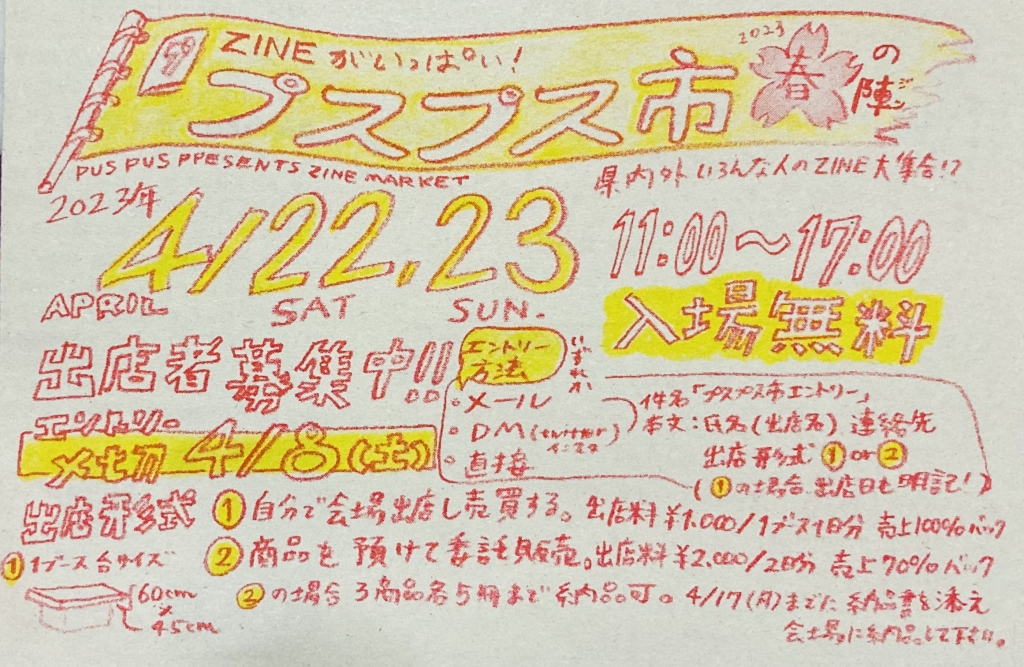 ZINEがいっぱい!
プスプス市 2023 春の陣 ジン
PUS PUS PPESENTS ZINE MARKET
県内外いろんな人のZINE大集合!?
2023年
4/22.23
APRIL SAT SUN.
11:00〜17:00
入場無料
出店者募集中!!
エントリー
〆切 4/8(土)
エントリー
方法
いずれか
・メール
・DM(twitter)
インスタ
・直接
件名「プスプス市エントリー」
本文:氏名(出店名) 連絡先
出店形式 ① or ②
(①の場合出店日も明記!)
出店形式
① 自分で会場出店し売買する。出店料¥1.000/1ブース1日分 売上100%バック
② 商品を預けて委託販売。出店料¥2.000/2日分 売上70%バック
①1ブース台サイズ
60cm
×
45cm
②の場合3商品各5冊まで納品可。4/17(月)までに納品書を添え
会場に納品して下さい。